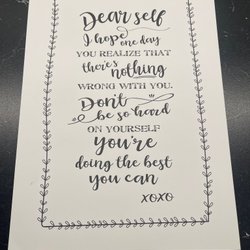 Dear self
I hope one day
YOU REALIZE THAT
there's nothing
WRONG WITH YOU.
Don't
be so hard
ON YOURSELF
you're
doing the best
you can
XOXO